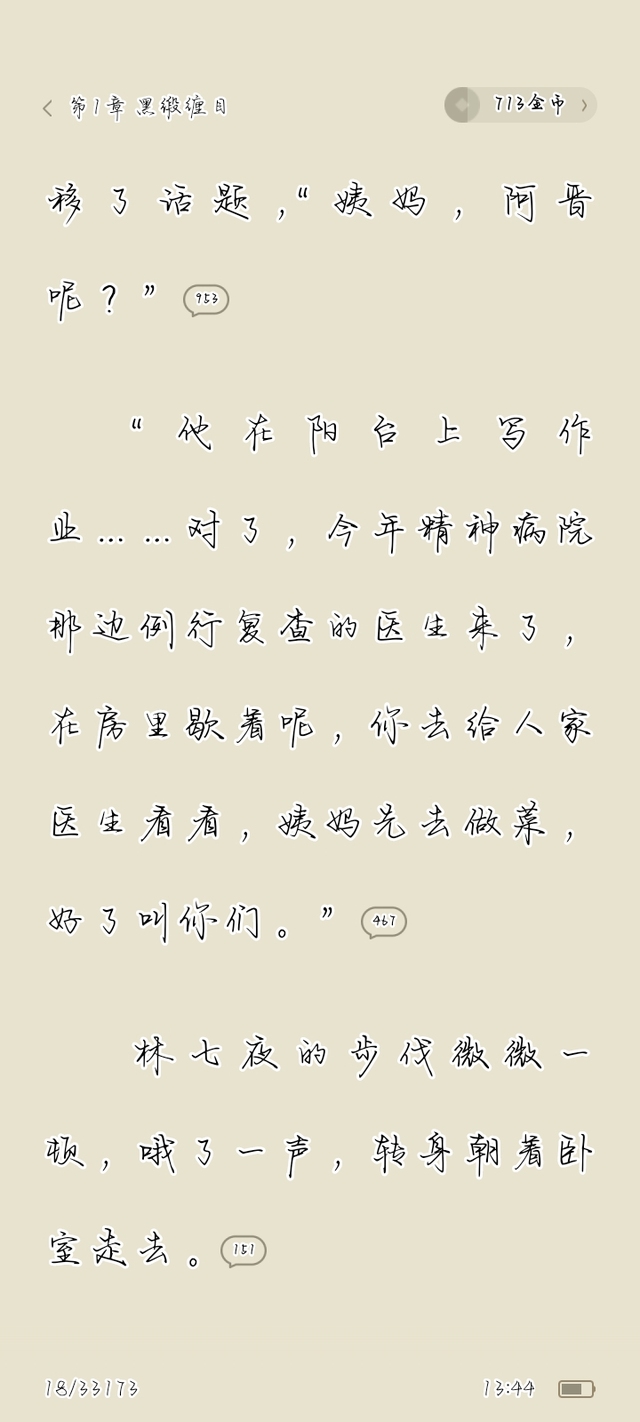 第1章 黑缎缠目
713金币
移了话题，“姨妈，阿晋
呢？” 953
“他在阳台上写作
业……对了，今年精神病院
那边例行复查的医生来了，
在房里歇着呢，你去给人家
医生看看，姨妈先去做菜，
好了叫你们。” 467
林七夜的步伐微微一
顿，哦了一声，转身朝着卧
室走去。 151
18/33173
13:44